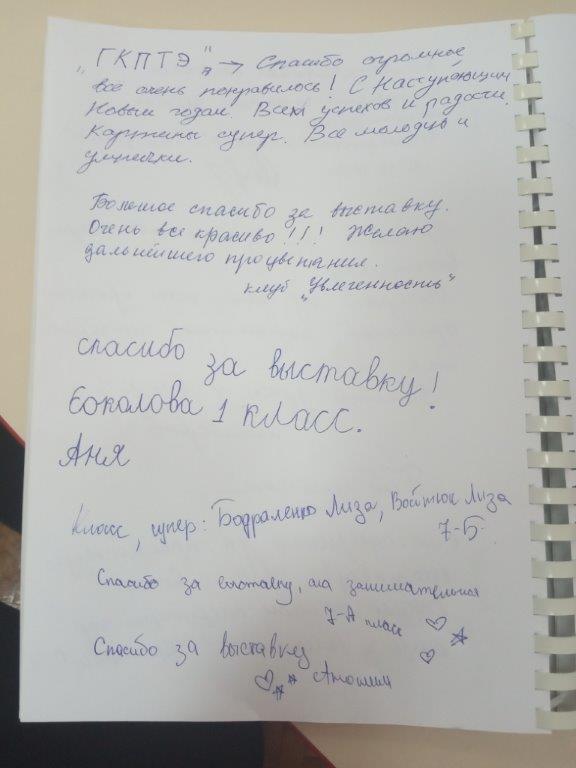 „ГКПТЭ" → Спасибо огромное
все очень понравилось! С Наступающим
Новым годом. Всем успехов и радости.
Картины супер. Все молодцы и
умнички.
Большое спасибо за выставку.
Очень все красиво!!! Желаю
дальнейшего процветания.
клуб „Увлеченность"
спасибо за выставку!
Соколова 1 класс.
Аня
Класс, супер: Бодраленко Лиза, Войтюк Лиза
7-Б
Спасибо за выставку, она занимательная
7-А класс
Спасибо за выставку
Аноним